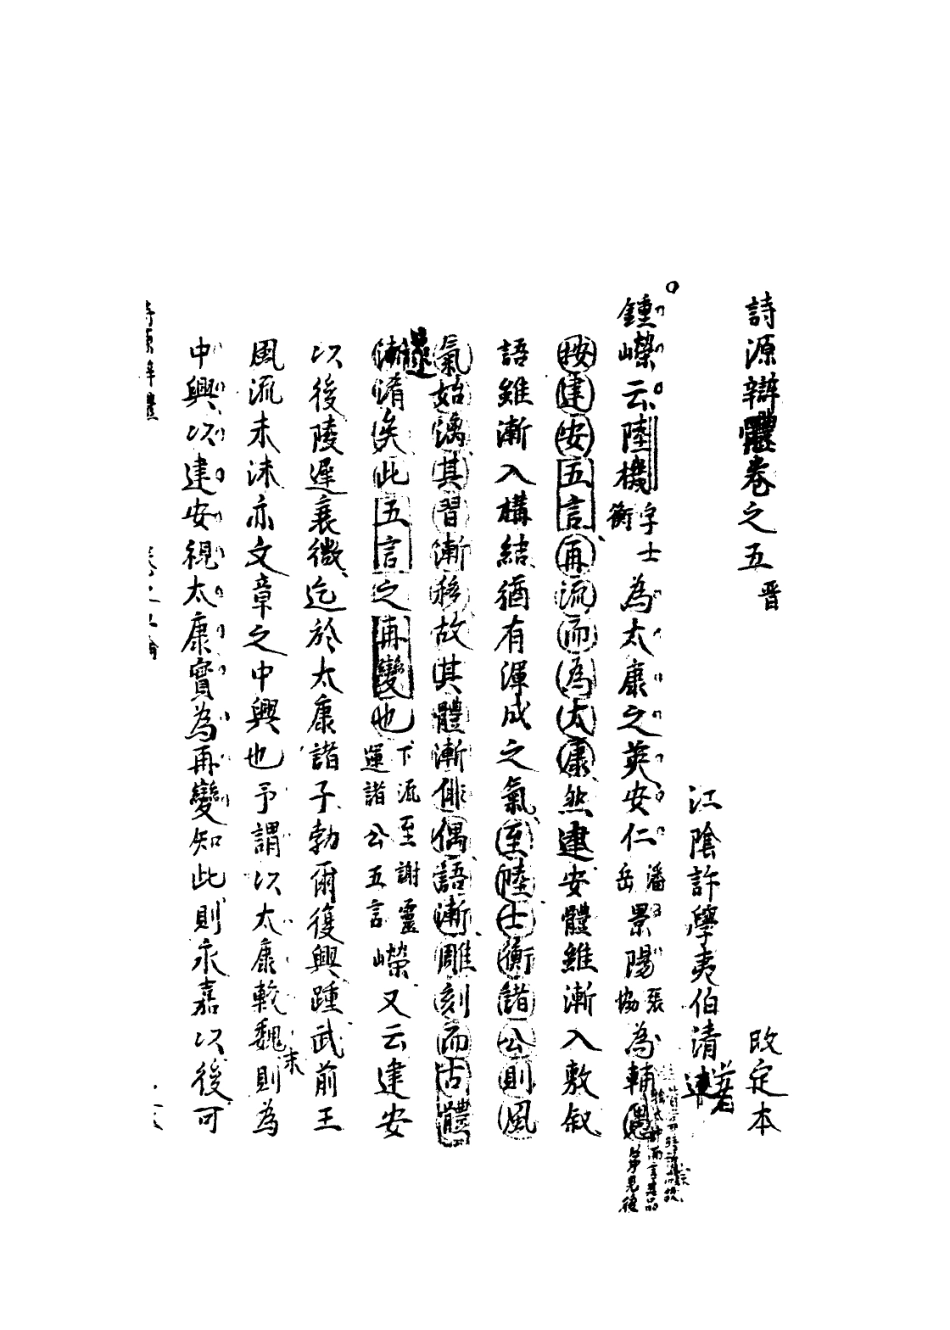 詩源辯體卷之五 晋
改定本
江陰許學夷伯清著
鍾嶸云陸機字士衡為太康之英安仁潘岳景陽張協為輔
按建安五言再流而為太康然建安體雖漸入敷叙
語雖漸入構結猶有渾成之氣至陸士衡諸公則風
氣始漓其習漸移故其體漸俳偶語漸雕刻而古體
遂漸淆矣此五言之再變也下流至謝靈運諸公五言嶸又云建安
以後陵遲衰微迄於太康諸子勃爾復興踵武前王
風流未沫亦文章之中興也予謂以太康較魏末則為
中興以建安視太康實為再變知此則永嘉以後可
詩源辯體